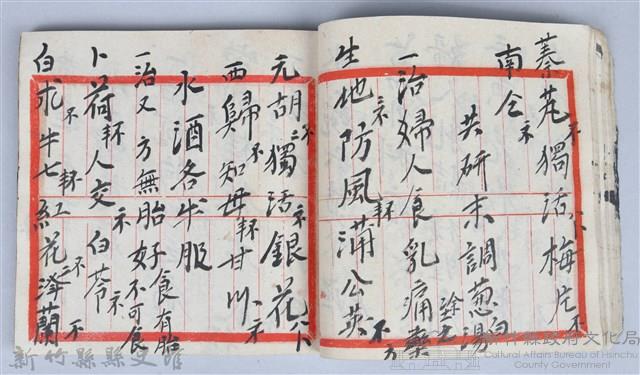 秦艽獨活梅片
南仝
共研末調葱白湯塗之
一治婦人食乳痛藥方
生地防風蒲公英
元胡獨活銀花
西歸知母甘川
水酒各半服
一治又方無胎好食有胎不可食
卜荷人交白苓
白求牛七紅花澤蘭
新竹縣縣史館
新竹縣政府文化局
Cultural Affairs Bureau of Hsinchu
County Government